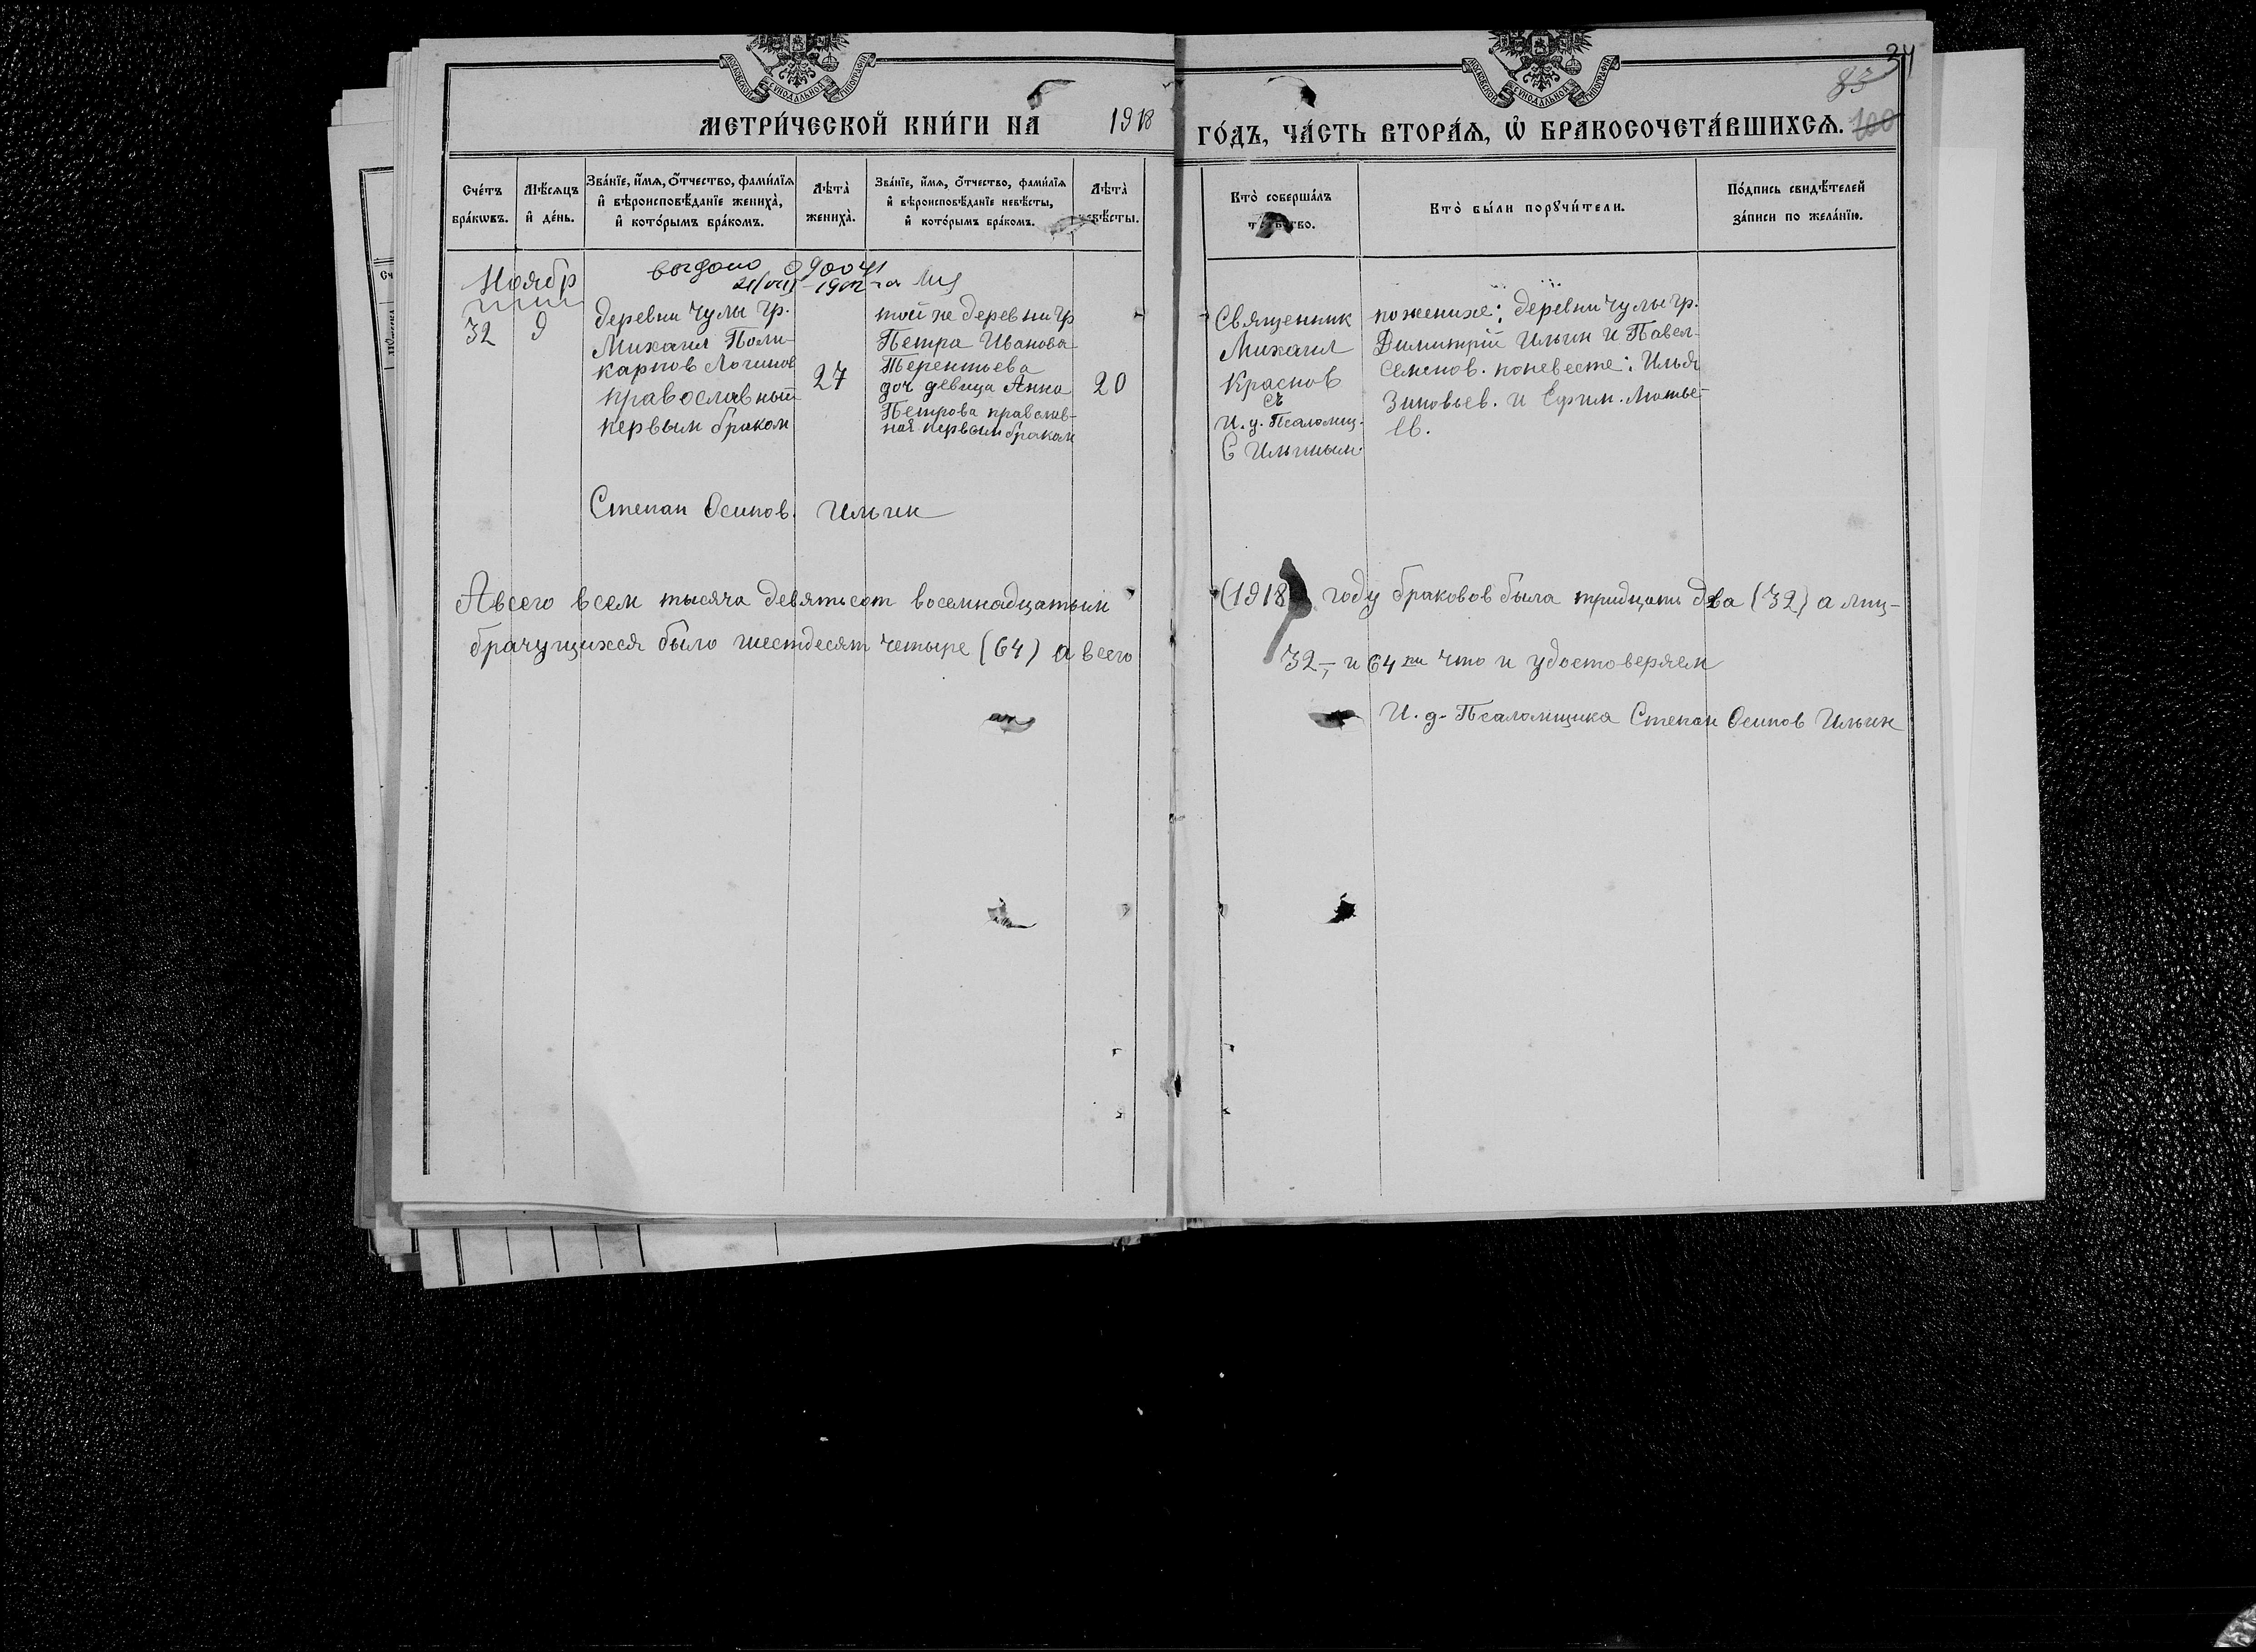 34
83
100
МОСКОВСКОЙ СѴНОДАЛЬНОЙ ТИПОГРАФІИ
МОСКОВСКОЙ СѴНОДАЛЬНОЙ ТИПОГРАФІИ
МЕТРИ́ЧЕСКОЙ КНИ́ГИ НА 1918 ГО́ДЪ, ЧА́СТЬ ВТОРА́Ѧ, Ѡ҆ БРАКОСОЧЕТА́ВШИХСѦ.
Сче́тъ бра́кѡвъ.
Мѣ́сяцъ и҆ де́нь.
Зва́нїе, и҆́мѧ, ѻ҆́тчество, фами́лїѧ
и҆ вѣроисповѣ́данїе жениха̀,
и҆ кото́рымъ бра́комъ.
Лѣта̀ жениха̀.
Зва́нїе, и҆́мѧ, ѻ҆́тчество, фами́лїѧ
и҆ вѣроисповѣ́данїе невѣ́сты,
и҆ кото́рымъ бра́комъ.
Лѣта̀ невѣ́сты.
Кто̀ соверша́лъ
Кто̀ бы́ли порꙋчи́тели.
По́дпись свидѣ́телей
за́писи по жела́нїю.
Ноябр
выдано
32
9
деревни Чулы гр.
Михаил Поли-
карпов Логинов
православный
первым браком
27
той же деревни гр
Петра Иванова
Терентьева
доч девица Анна
Петрова православ-
ная первым браком
20
Священник
Михаил
Краснов
съ
И. д. Псаломщ.
С Ильиным
по женихе: деревни Чулы гр.
Димитрій Ильин и Павел
Семенов. по невесте: Илья
Зиновьев. и Ефим. Матве-
ев.
Степан Осипов. Ильин
А всего всем тысяча девятьсот восемнадцатым (1918) году браковов была тридцать два (32) а лиц-
брачущихся было шестдесят четыре (64) а всего 32, и 64 ти что и удостоверяем
И. д. Псаломщика Степан Осипов Ильин